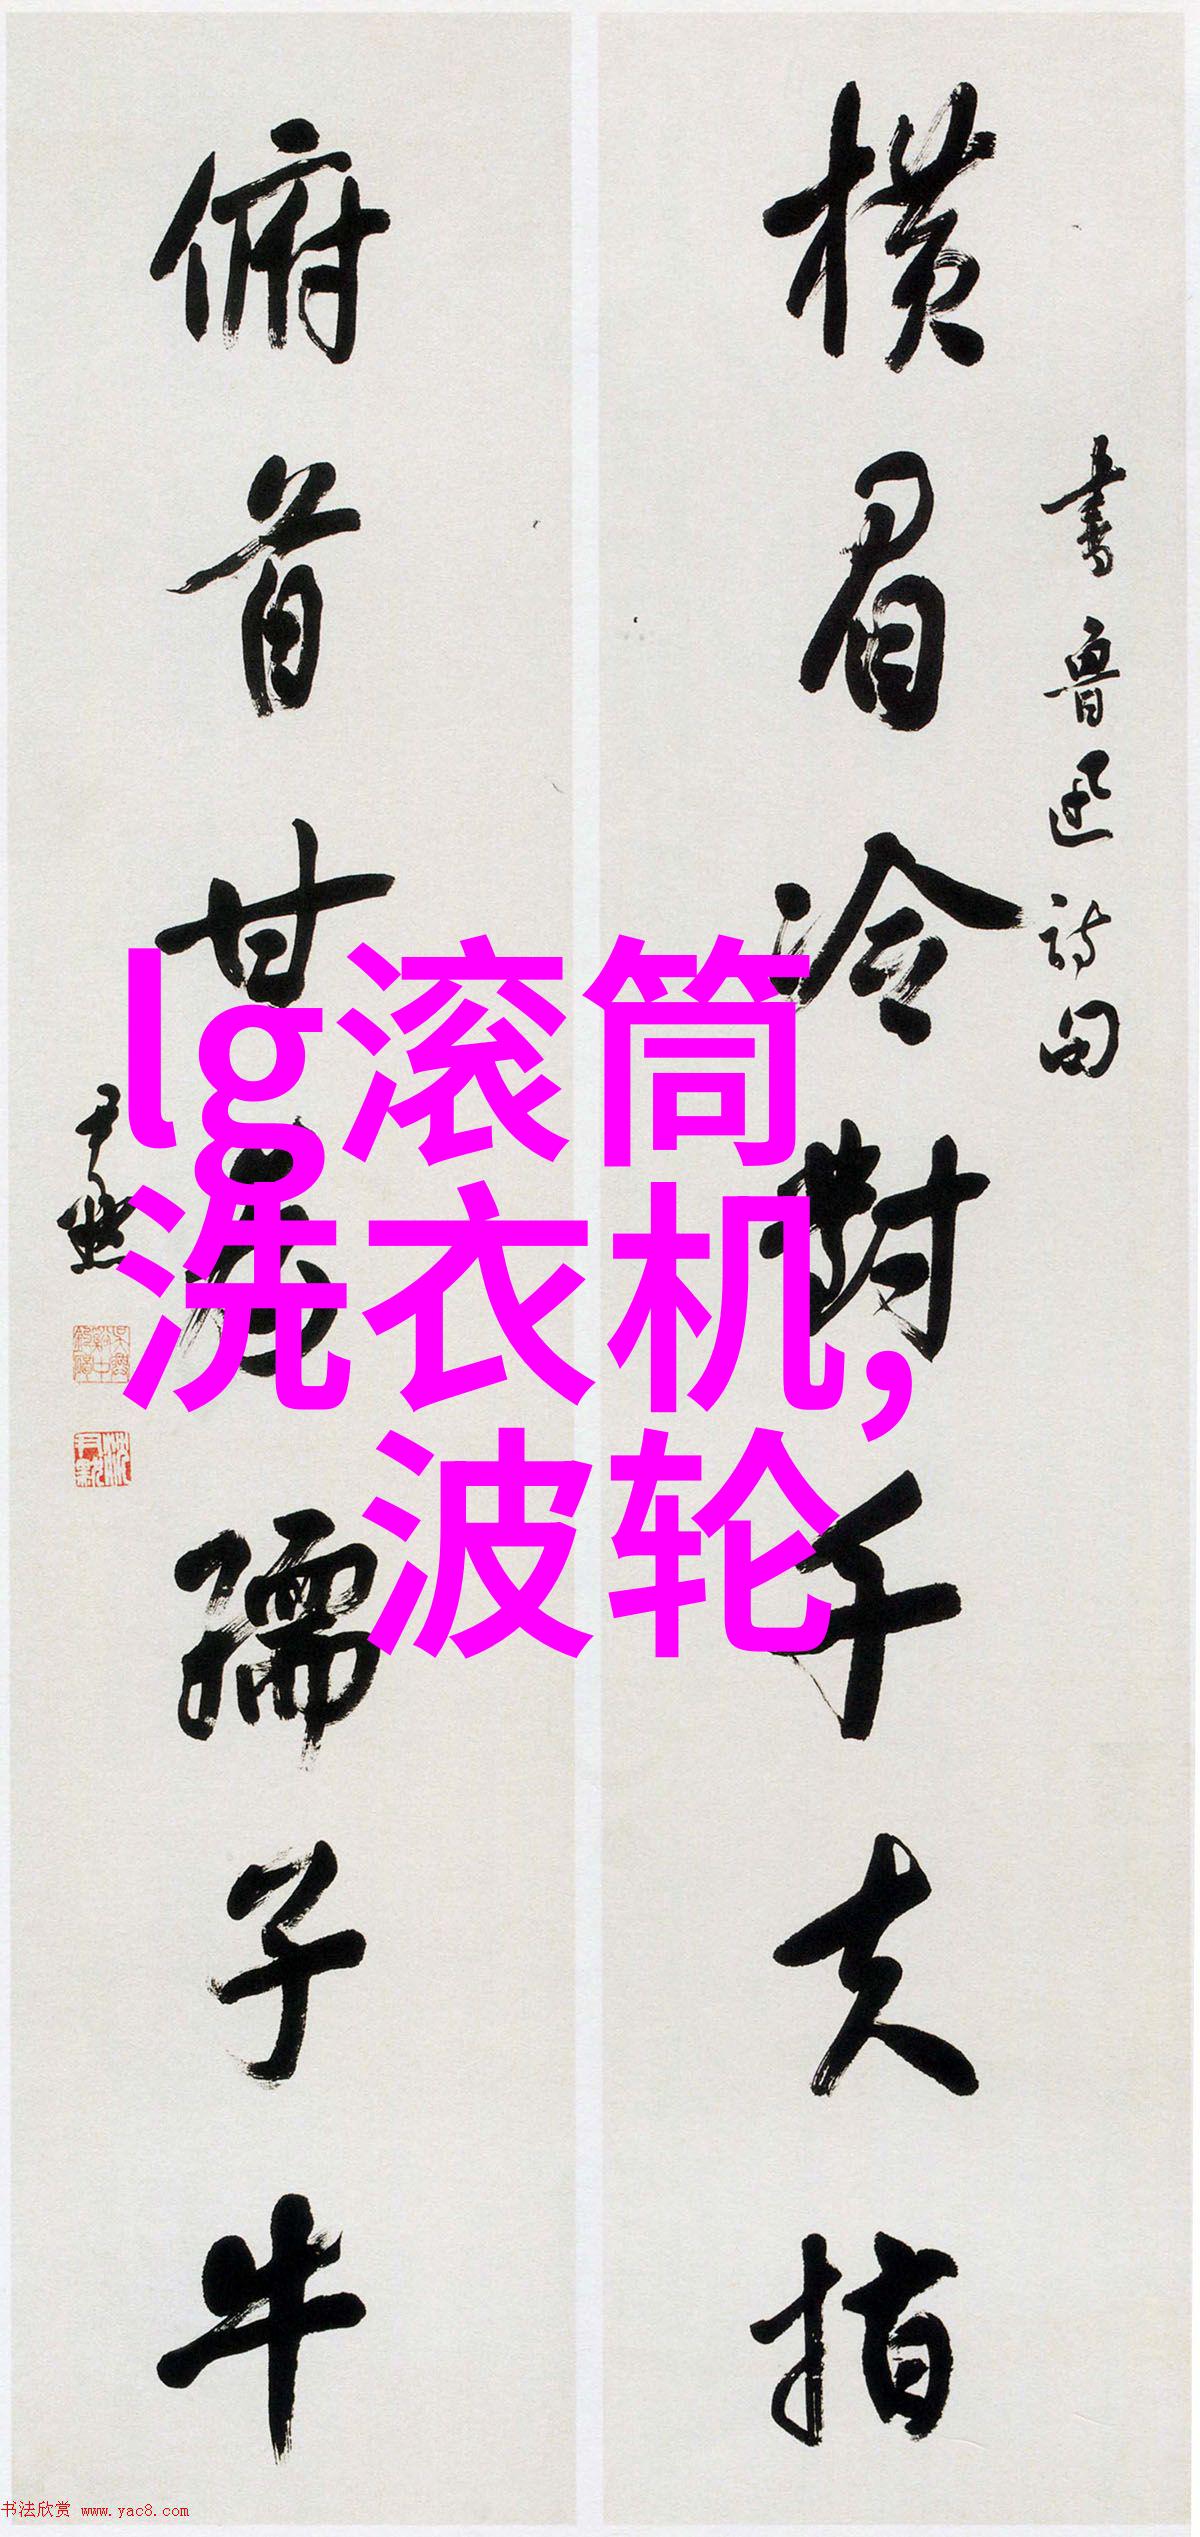 横眉冷對千夫指
書魯迅詩句
俯首甘為孺子牛
尹默
lg滚筒
洗衣机,
波轮
书法欣赏 www.yac8.com